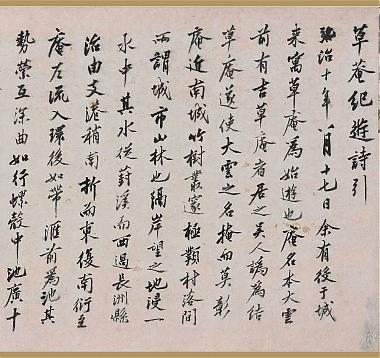 草菴紀遊詩引
弘治十年八月十七日余有役于城
來寓草菴為始遊也菴名本大雲
前有吉草菴者居之吳人譌為結
草菴遂使大雲之名掩而莫彰
菴近南城竹樹叢邃極類村落間
所謂城市山林也隔岸望之地浸一
水中其水從葑溪而西過長洲縣
治由支港稍南折而東復南衍至
菴左流入環後如帶滙前為池其
勢縈互深曲如行螺殼中池廣十